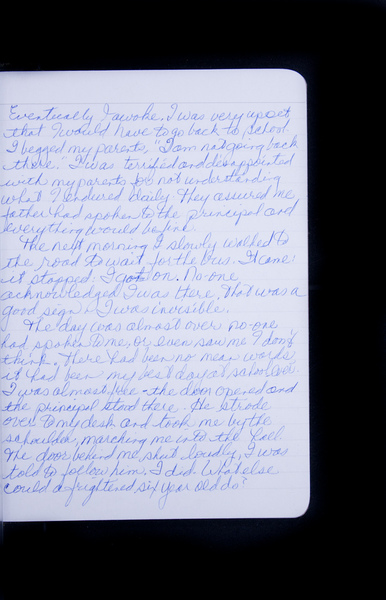 Eventually I awoke. I was very upset
that I would have to go back to school.
I begged my parents, "I am not going back
there." I was terrified and disappointed
with my parents for not understanding
what I endured daily. They assured me
father had spoken to the principal and
everything would be fine.
The next morning I slowly walked to
the road to wait for the bus. It came:
it stopped: I got on. No-one
acknowledged I was there. That was a
good sign - I was invesible.
The day was almost over no-one
had spoken to me, or even saw me I don't
think. There had been no mean words,
it had been my best day at school ever.
I was almost free - the door opened and
the principal stood there. He strode
over to my desk and took me by the
schoulder, marching me into the hall.
The door behind me shut loudly, I was
told to follow him. I did. What else
could a frightened six year old do?